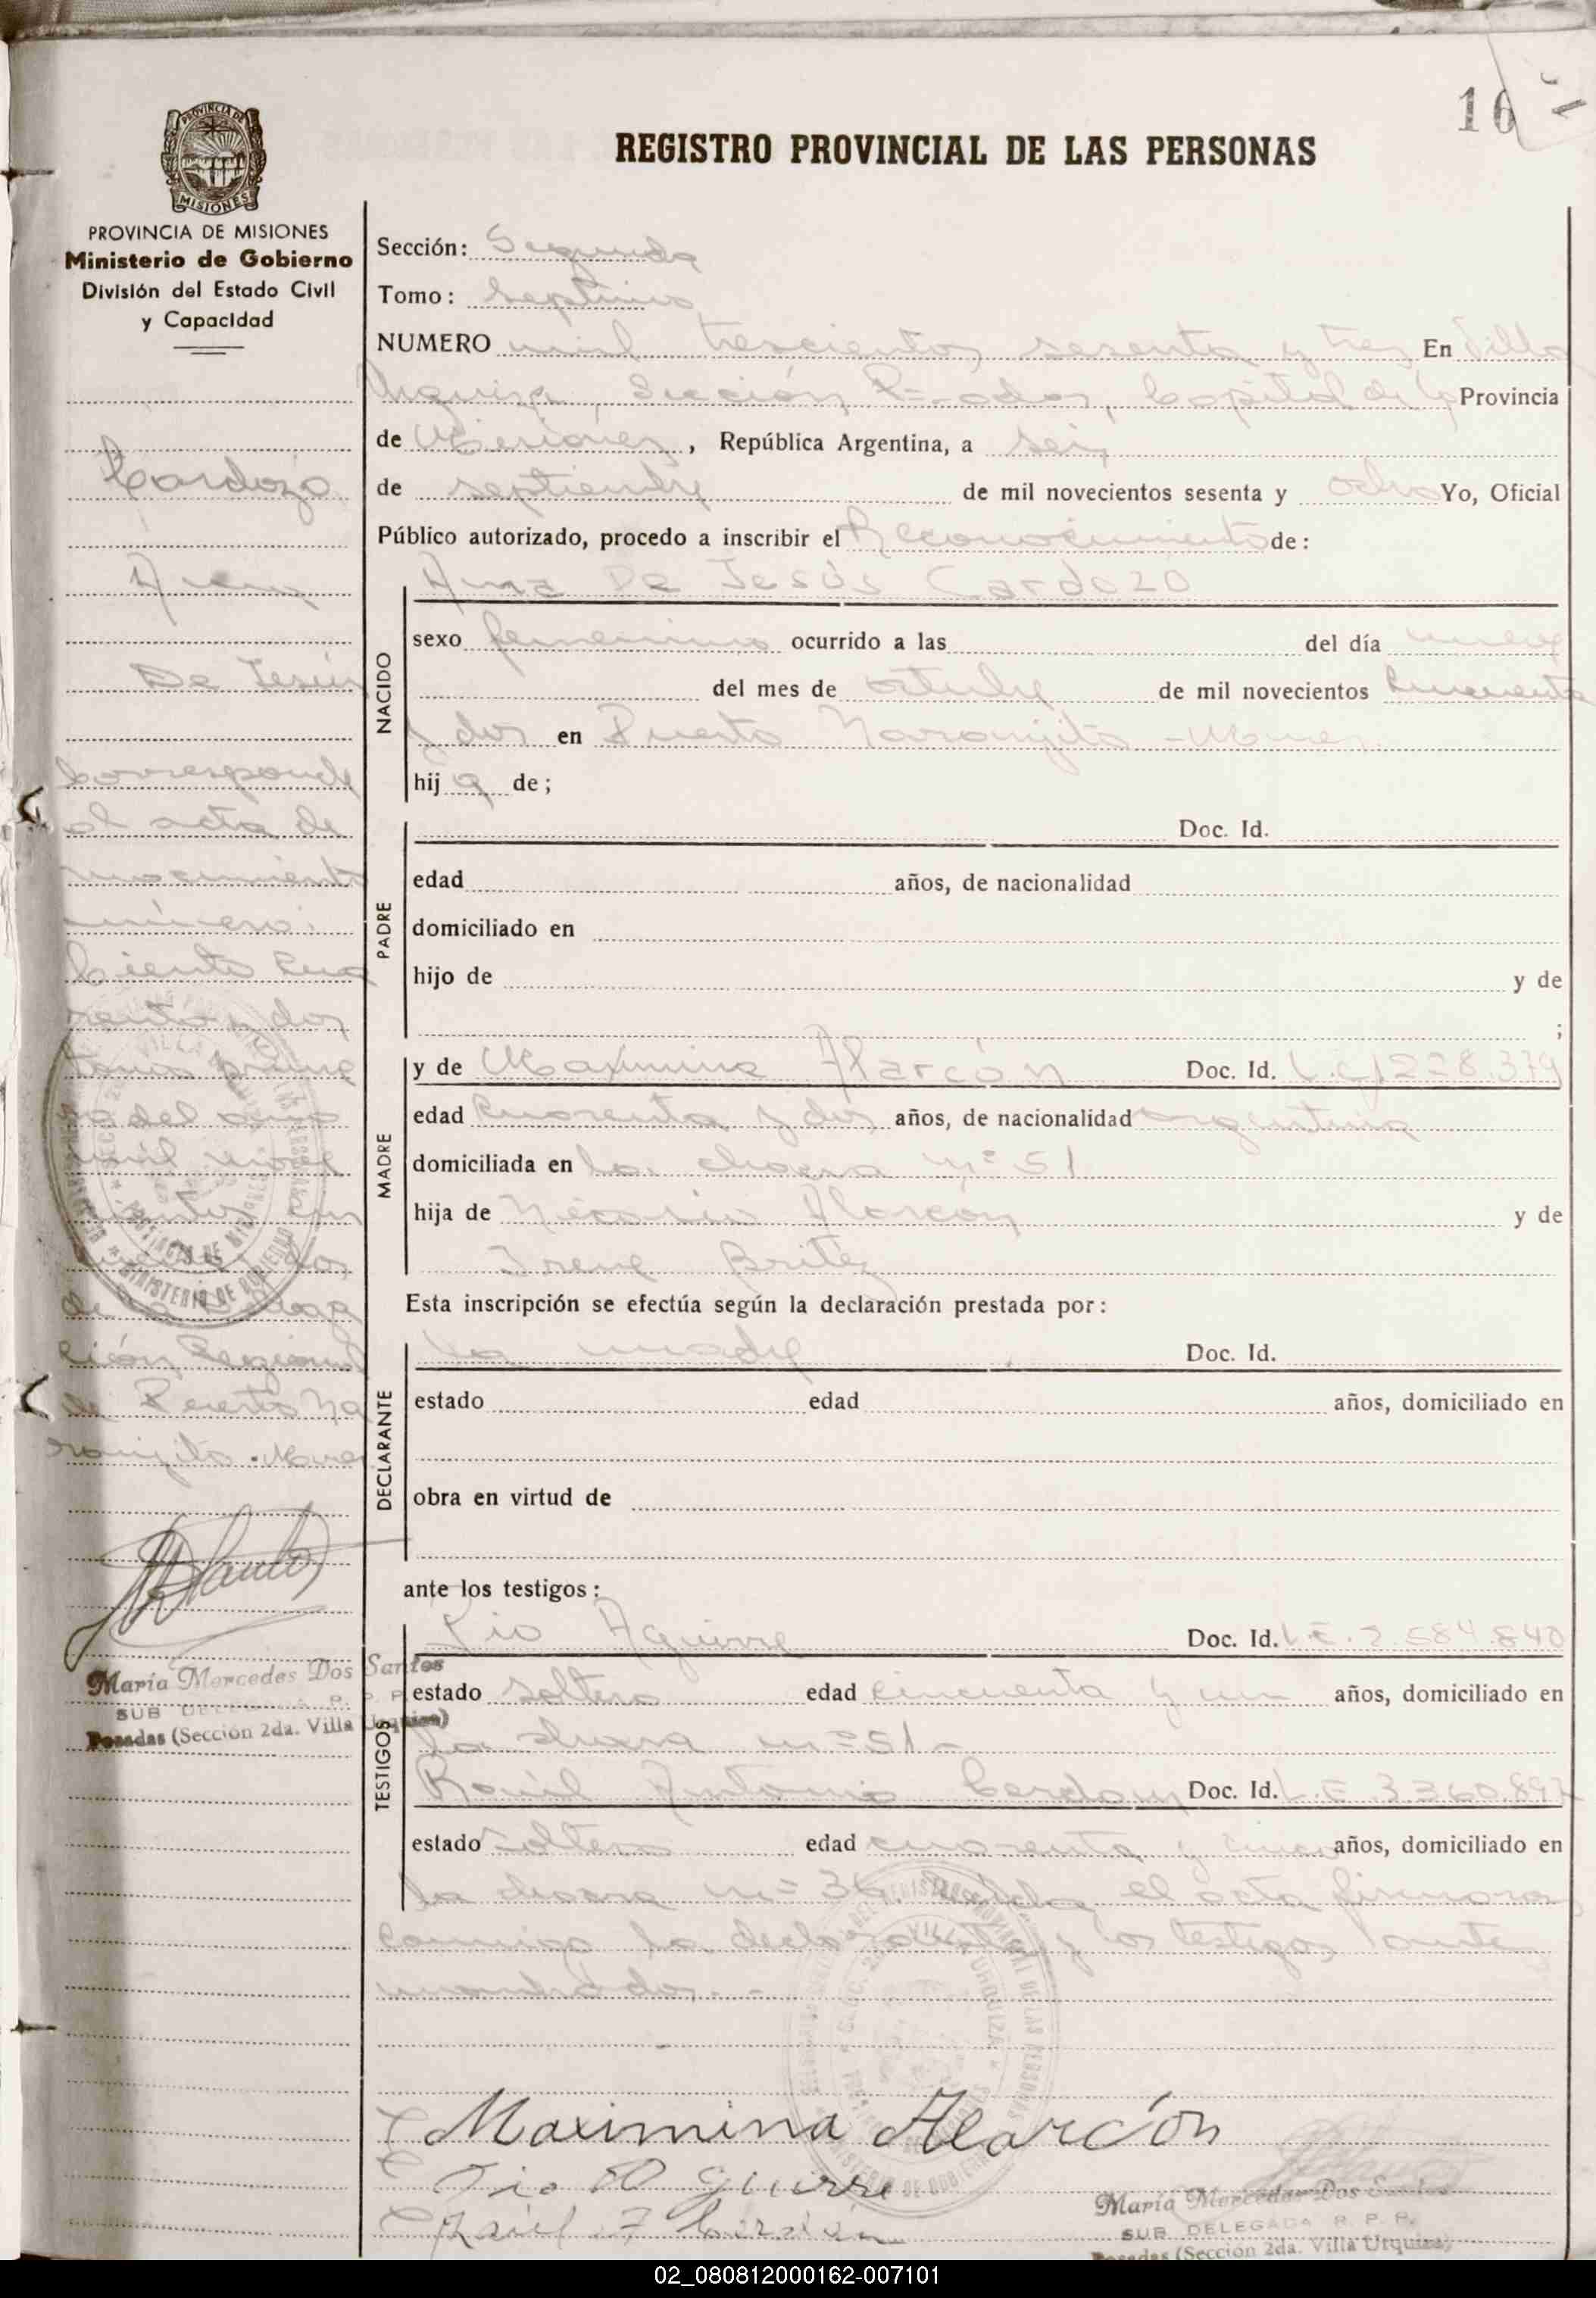 16
REGISTRO PROVINCIAL DE LAS PERSONAS
PROVINCIA DE
MISIONES
PROVINCIA DE MISIONES
Ministerio de Gobierno
División del Estado Civil
y Capacidad
Cardozo
Ana
De Jesús
Corresponde
al acta de
nacimiento
número:
Ciento cua
renta y dos
tomo prime
ro del año
mil nove
cientos cin
dos
de la Delega
ción Regional
de Puerto Na
ranjito - Mnes
María Mercedes Dos Santos
SUB DELEGADA R. P. P.
Posadas (Sección 2da. Villa Urquiza)
Sección: Segunda
Tomo: Septimo
NUMERO mil trescientos sesenta y tres En Villa
Urquiza, Sección, Posadas, Capital de la Provincia
de Misiones, República Argentina, a seis
de septiembre de mil novecientos sesenta y ocho Yo, Oficial
Público autorizado, procedo a inscribir el Reconocimiento de:
Ana De Jesús Cardozo
NACIDO
sexo femenino ocurrido a las del día nueve
del mes de octubre de mil novecientos cincuenta
y dos en Puerto Naranjito - Mnes.
hij a de;
PADRE
Doc. Id.
edad años, de nacionalidad
domiciliado en
hijo de y de
;
MADRE
y de Maximina Alarcón Doc. Id. L.C. 1.228.379
edad cuarenta y dos años, de nacionalidad argentina
domiciliada en la chacra nº 51
hija de Alarcón y de
Irene Britez
Esta inscripción se efectúa según la declaración prestada por:
DECLARANTE
la madre Doc. Id.
estado edad años, domiciliado en
obra en virtud de
ante los testigos:
TESTIGOS
Pio Aguirre Doc. Id. L.E. 2.584.840
estado soltero edad cincuenta y un años, domiciliado en
la chacra nº 51 -
Raúl Antonio Doc. Id. L.E. 3.360.897
estado soltero edad cuarenta y cinco años, domiciliado en
la chacra nº 36. Leída el acta firmaron
conmigo la declarante y los testigos
Maximina Alarcón
Pio Aguirre
Raúl A.
María Mercedes Dos Santos
SUB DELEGADA R. P. P.
Posadas (Sección 2da. Villa Urquiza)
02_080812000162-007101